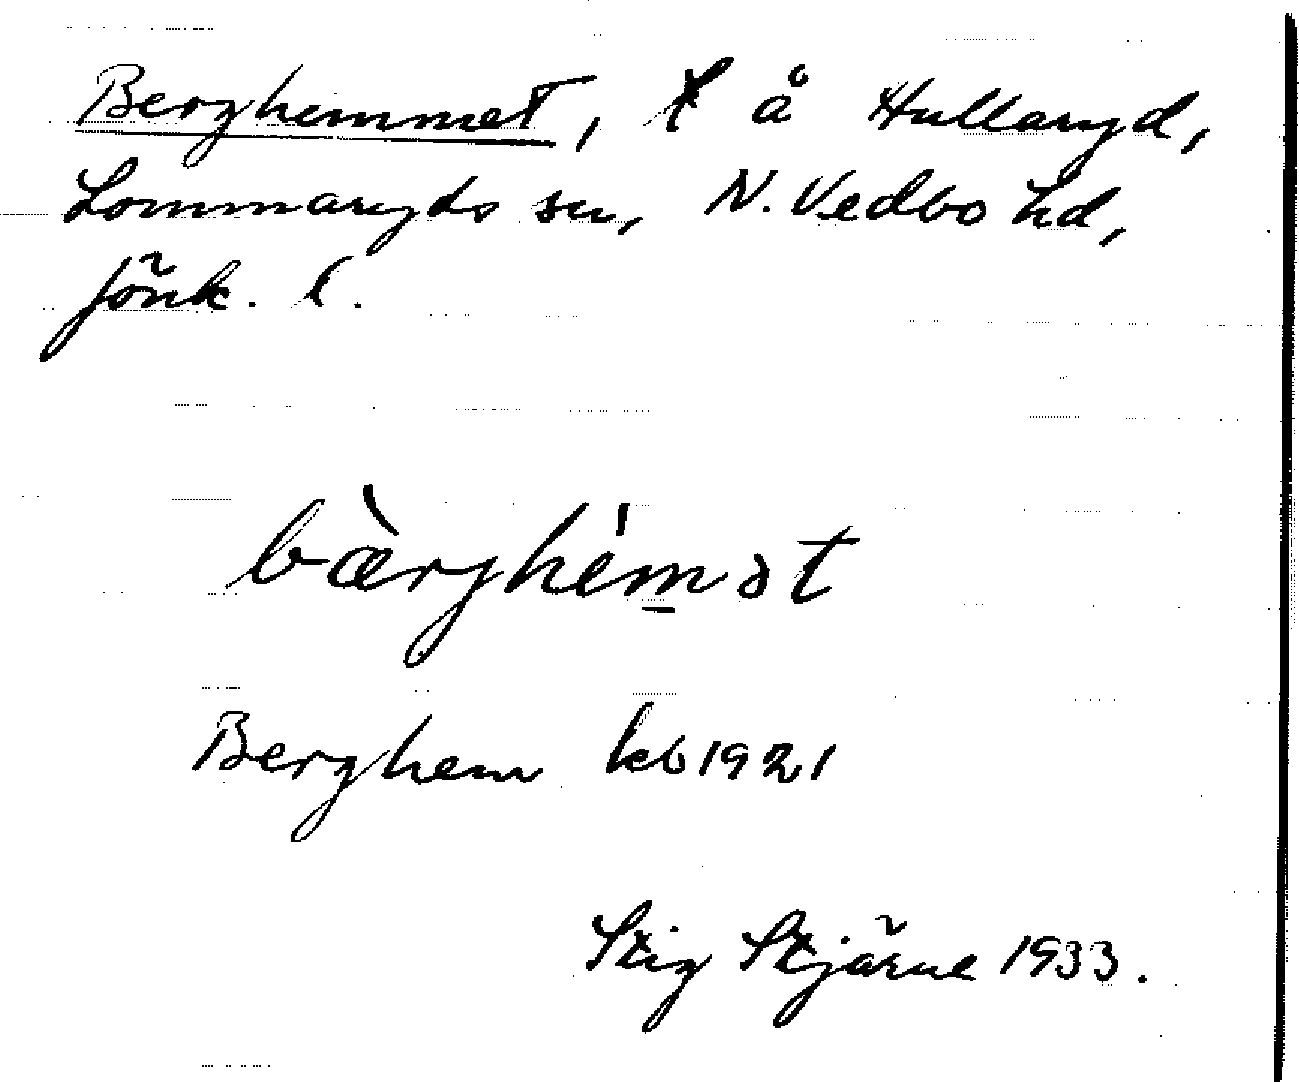 Berghemmet, t å Hullaryd,
Lommaryds sn, N. Vedbo hd,
Jönk. l.
bærghemət
Berghem kb 1921
Stig Stjärne 1933.